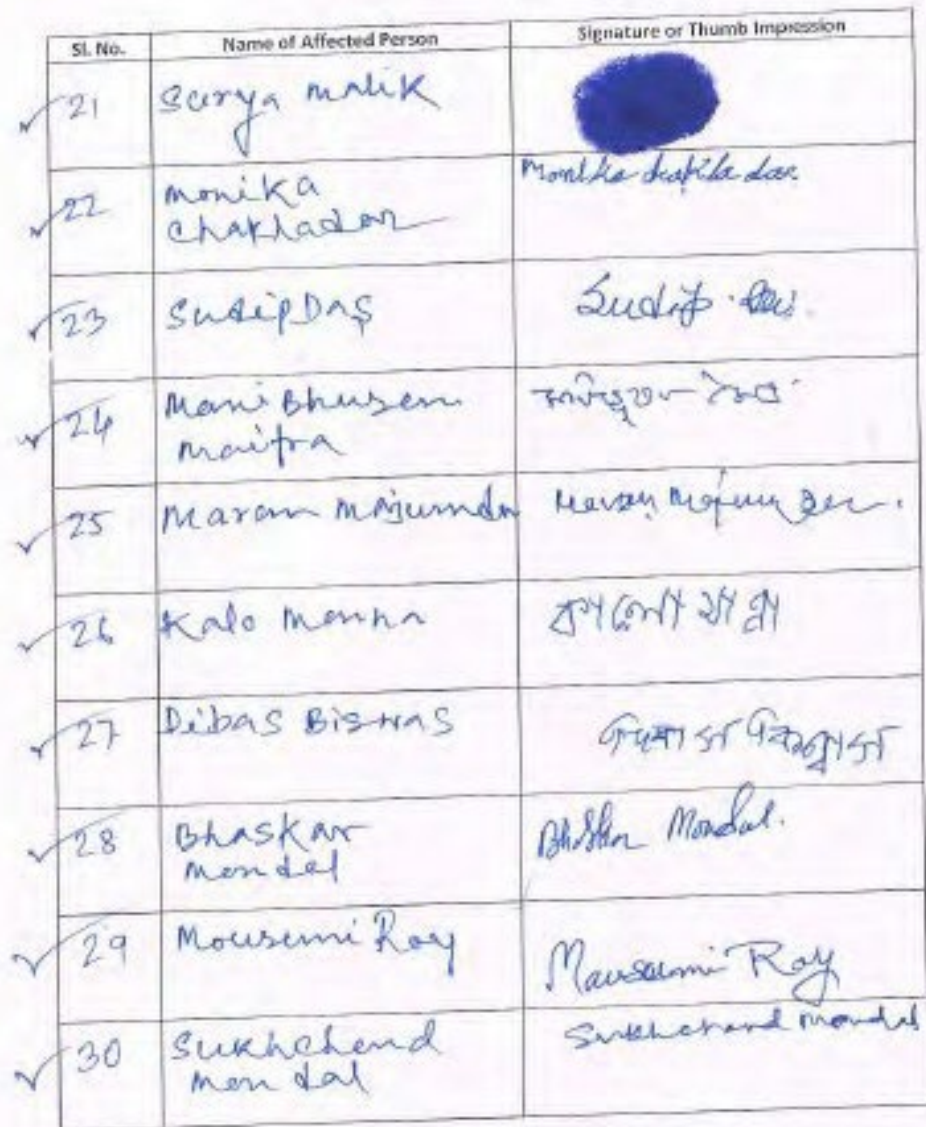 Sl. No. Name of Affected Person Signature or Thumb Impression
21 Surya Malik
22 Monika Monika chakladar
Chakladar
23 Sudip Das Sudip Das.
24 Mani Bhusan মনিভূষন মৈত্র
Maitra
25 Maran Majumdar Maran Majumdar.
26 Kalo Manna কালো মান্না
27 Dibas Biswas দিবাস বিশ্বাস
28 Bhaskar Bhaskar Mondal.
Mondal
29 Mousumi Roy Mousumi Roy
30 Sukhchand Sukhchand Mondal
Mondal